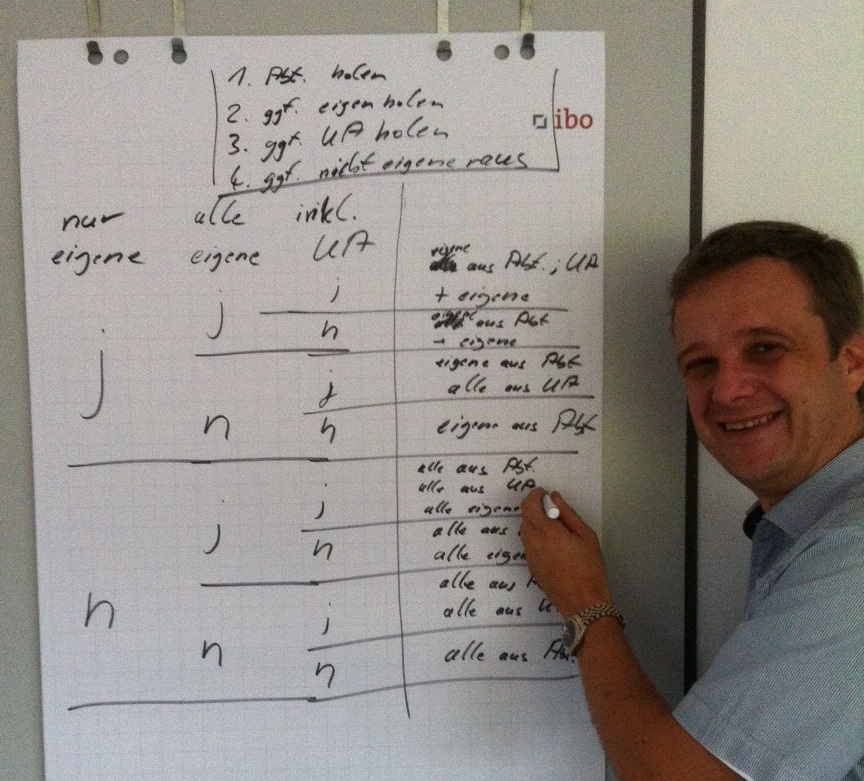 1. Abt. holen
2. ggf. eigen holen
3. ggf. UA holen
4. ggf. nicht eigene raus
ibo
nur eigene
alle eigene
inkl. UA
eigene aus Abt., UA
j
+ eigene
j
n
aus Abt
eigene
j
eigene aus Abt
j
alle aus UA
n
n
eigene aus Abt
alle aus Abt.
alle aus UA
j
alle eigene
j
alle aus
n
alle
n
alle aus
j
alle aus
n
n
alle aus